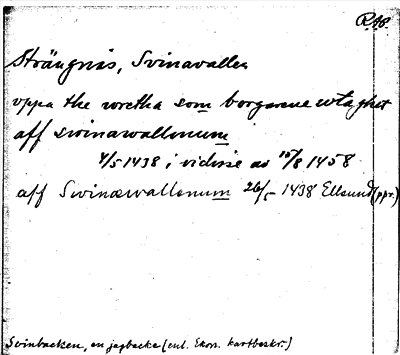 R.Ap.
Strängnäs, Svinavallen
vppa the wretha som borgarene wtaghit
aff swinawallenum
4/5 1438 i vidisse av 15/8 1458
aff Swinawallenum 26/5 1438 Ellsund (ppr.)
Svinbacken, en jagbacke (enl. Ekon. kartbeskr.)